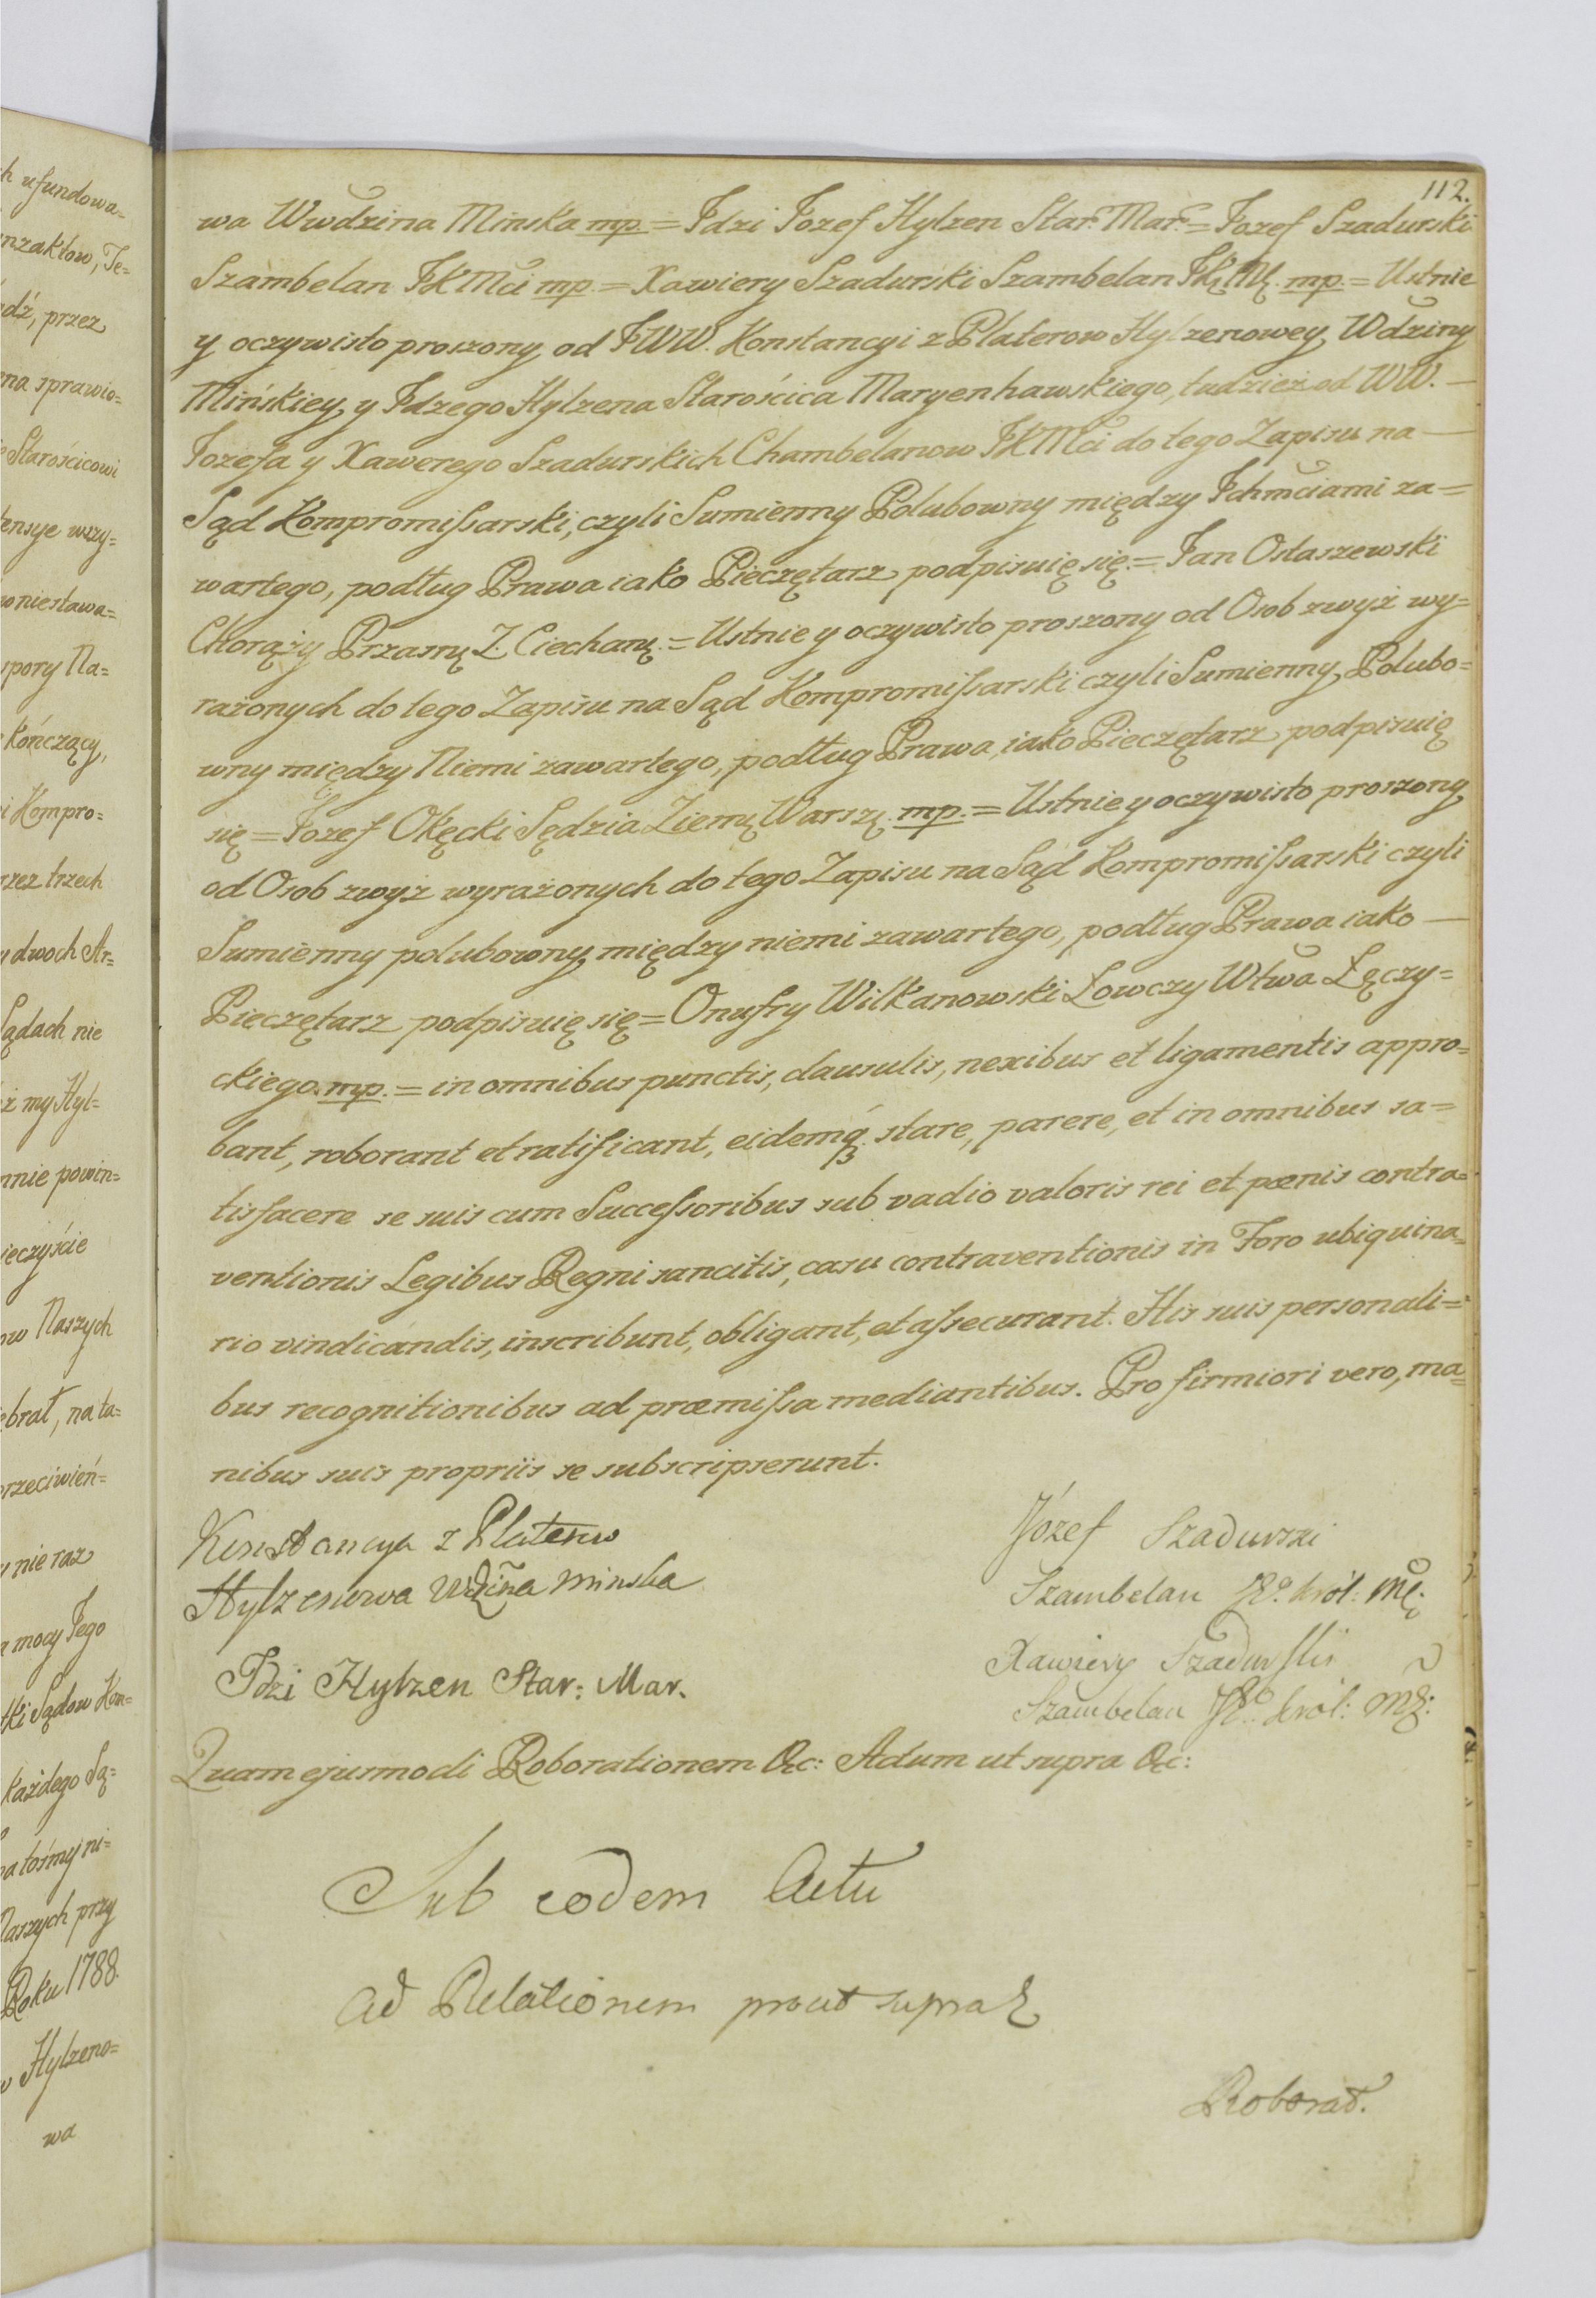 ch ufundowa=
nzaktow, Te=
ądź, przez
zna sprawie=
e Starościcowi
tensye wszy=
oniestawa=
spory Na=
kończący,
i Kompro=
rzez trzech
y dwoch Ar=
Sądach nie
ż my Hyl=
nnie powin=
ieczyście
ow Naszych
ebrał, na ta=
przeciwień=
y nie raz
a mocy Jego
tki Sądow Kom=
każdego Są=
atośmy ni=
Naszych przy
Roku 1788.
w Hylzeno=
wa
112.
wa Wwdzina Minska mp. = Idzi Jozef Hylzen Star. Mar. = Jozef Szadurski
Szambelan JKMci mp. = Xawiery Szadurski Szambelan JKMci. mp. = Ustnie
y oczywisto proszony od JWW. Konstancyi z Platerow Hylzenowey, Wdziny
Mińskiey, y Idzego Hylzena Starościca Maryenhawskiego, tudzież od WW. —
Jozefa y Xawerego Szadurskich Chambelanow JKMci do tego Zapisu na —
Sąd Kompromissarski, czyli Sumienny Polubowny między Ichmciami za=
wartego, podług Prawa iako Pieczętarz podpisuię się. = Jan Ostaszewski
Chorąży Przasny Z. Ciechan. = Ustnie y oczywisto proszony od Osob zwyż wy=
rażonych do tego Zapisu na Sąd Kompromissarski czyli Sumienny, Polubo=
wny między Niemi zawartego, podług Prawa, iako Pieczętarz podpisuię
się = Jozef Okęcki Sędzia Ziem. Warsz. mp. = Ustnie y oczywisto proszony
od Osob zwyż wyrażonych do tego Zapisu na Sąd Kompromissarski czyli
Sumienny polubowny, między niemi zawartego, podług Prawa iako —
Pieczętarz podpisuię się = Onufry Wilkanowski Łowczy Wtwa Łęczy=
ckiego. mp. = in omnibus punctis, clausulis, nexibus et ligamentis appro=
bant, roborant et ratificant, eidemq; stare, parere, et in omnibus sa=
tisfacere se suis cum Successoribus sub vadio valoris rei et pœnis contra=
ventionis Legibus Regni sancitis, casu contraventionis in Foro ubiquina=
rio vindicandis, inscribunt, obligant, et assecurant. His suis personali=
bus recognitionibus ad præmissa mediantibus. Pro firmiori vero, ma=
nibus suis propriis se subscripserunt.
Konstancya z Platerow
Hylzenowa Wdzina minska
Idzi Hylzen Star: Mar.
Józef Szadurski
Szambelan Jo. król: Mci.
Xawiery Szadurski
Szambelan Jo. król: Mci:
Quam ejusmodi Roborationem &c: Actum ut supra &c:
Sub eodem Actu
Ad Relationem prout supra
Roborat.